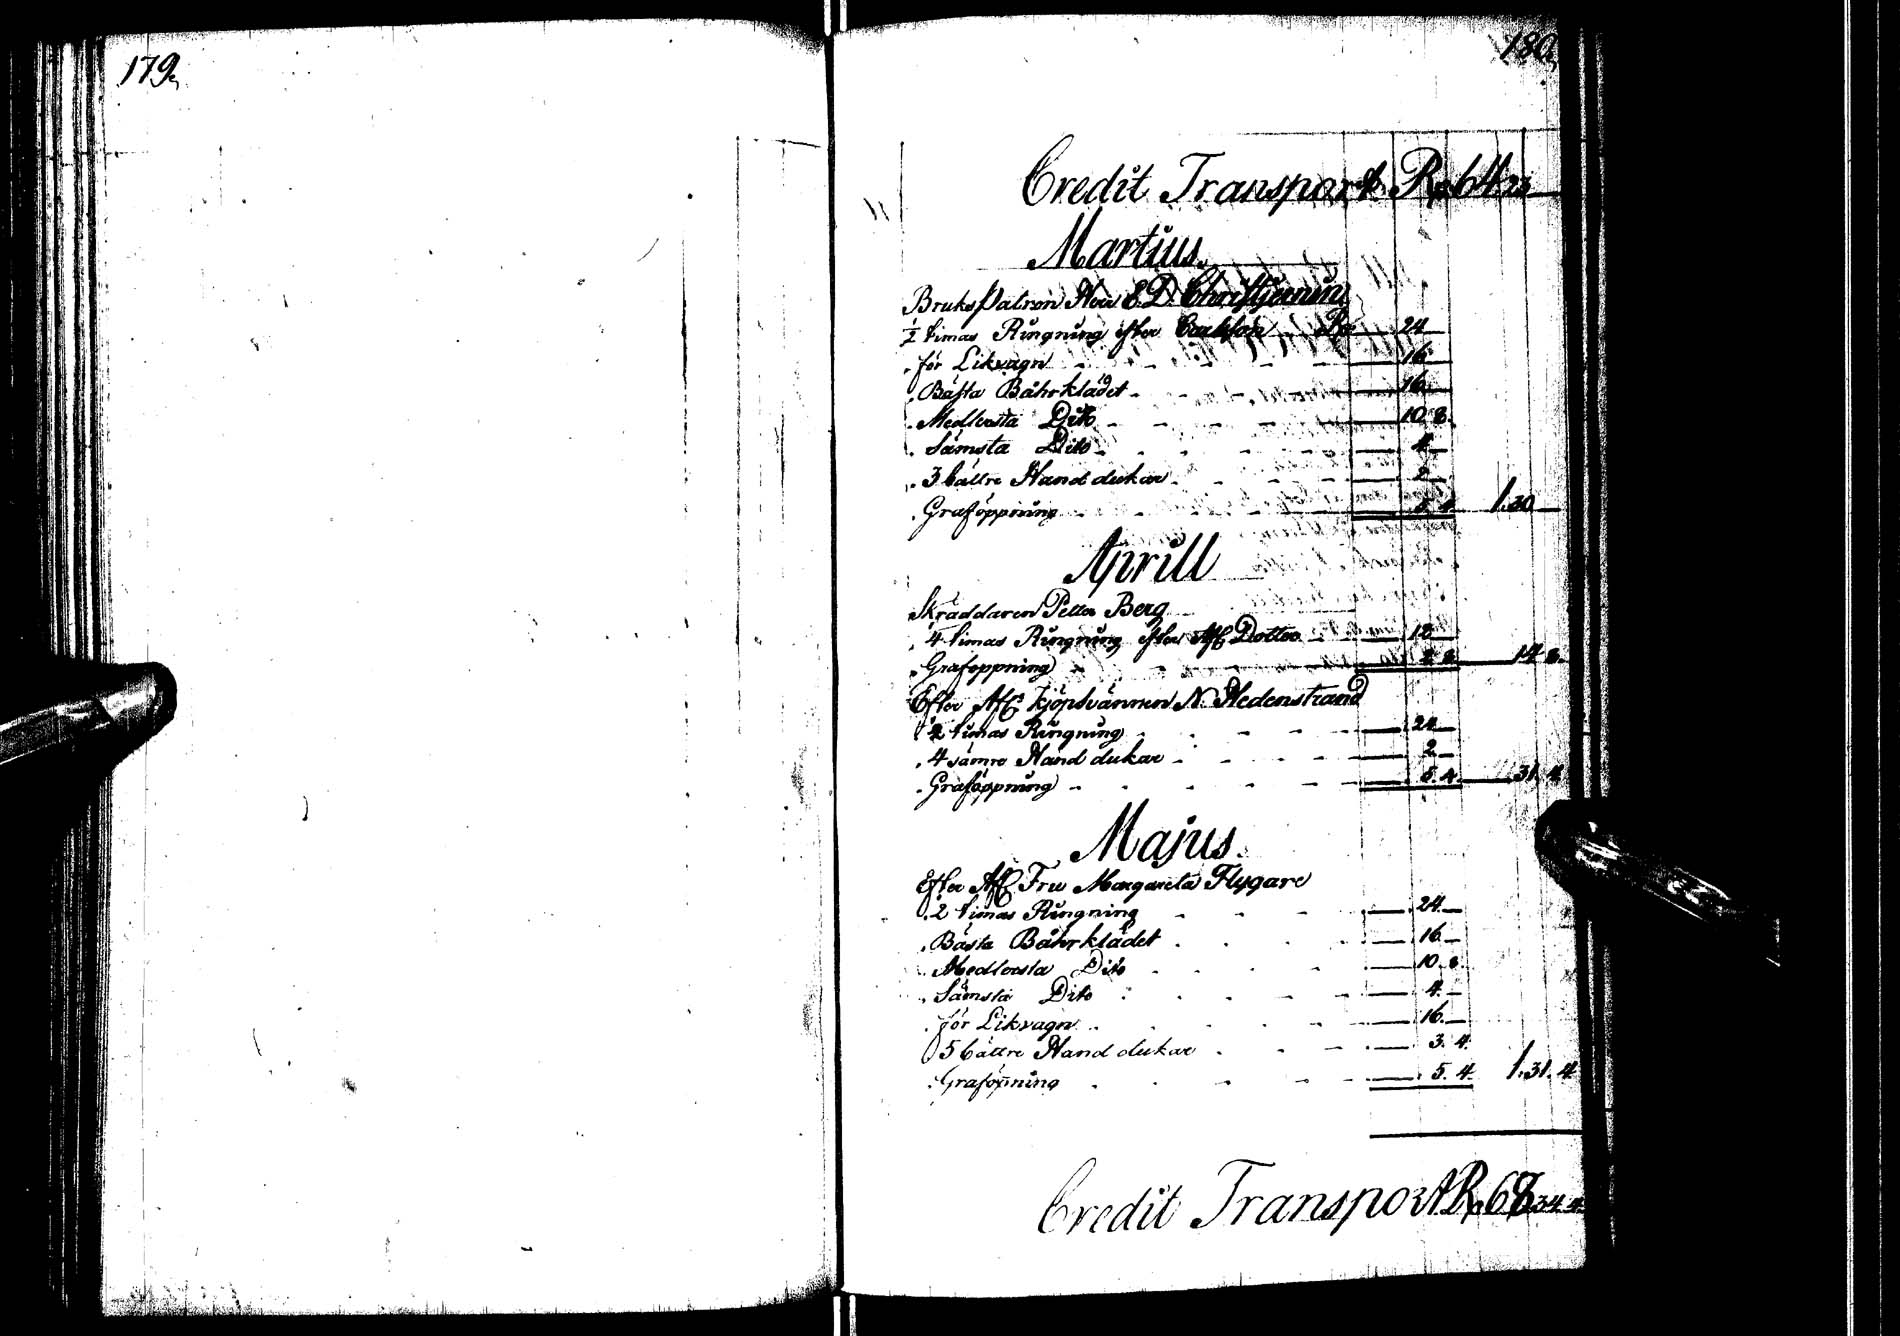 179.
180.
Credit Transport R 64.23
Martius.
Bruks Patron Herr E. D. Christjernin
1/2 timas Ringning efter R 24
för Likvagn 16
Bästa Båhrklädet 16
Medlersta Dito 10 8.
Sämsta Dito 4
3 bättre Handdukar 2
Graföppning 5. 4 1.30
Aprill
Skräddaren Petter Berg
1/4 timas Ringning efter Afl. Dotter 12
Graföppning 2. 8 14 8.
Efter Afl. kjöpsvännen N. Hedenstrand
1/2 timas Ringning 24
4 sämre Handdukar 2
Graföppning 5. 4. 31. 4
Majus.
Efter Afl. Fru Margareta Flygare
1/2 timas Ringning 24
Bästa Båhrklädet 16
Medlersta Dito 10. 8
Sämsta Dito 4
för Likvagn 16
5 bättre Handdukar 3. 4.
Graföpning 5. 4. 1.31. 4
Credit Transport R 68 34 4